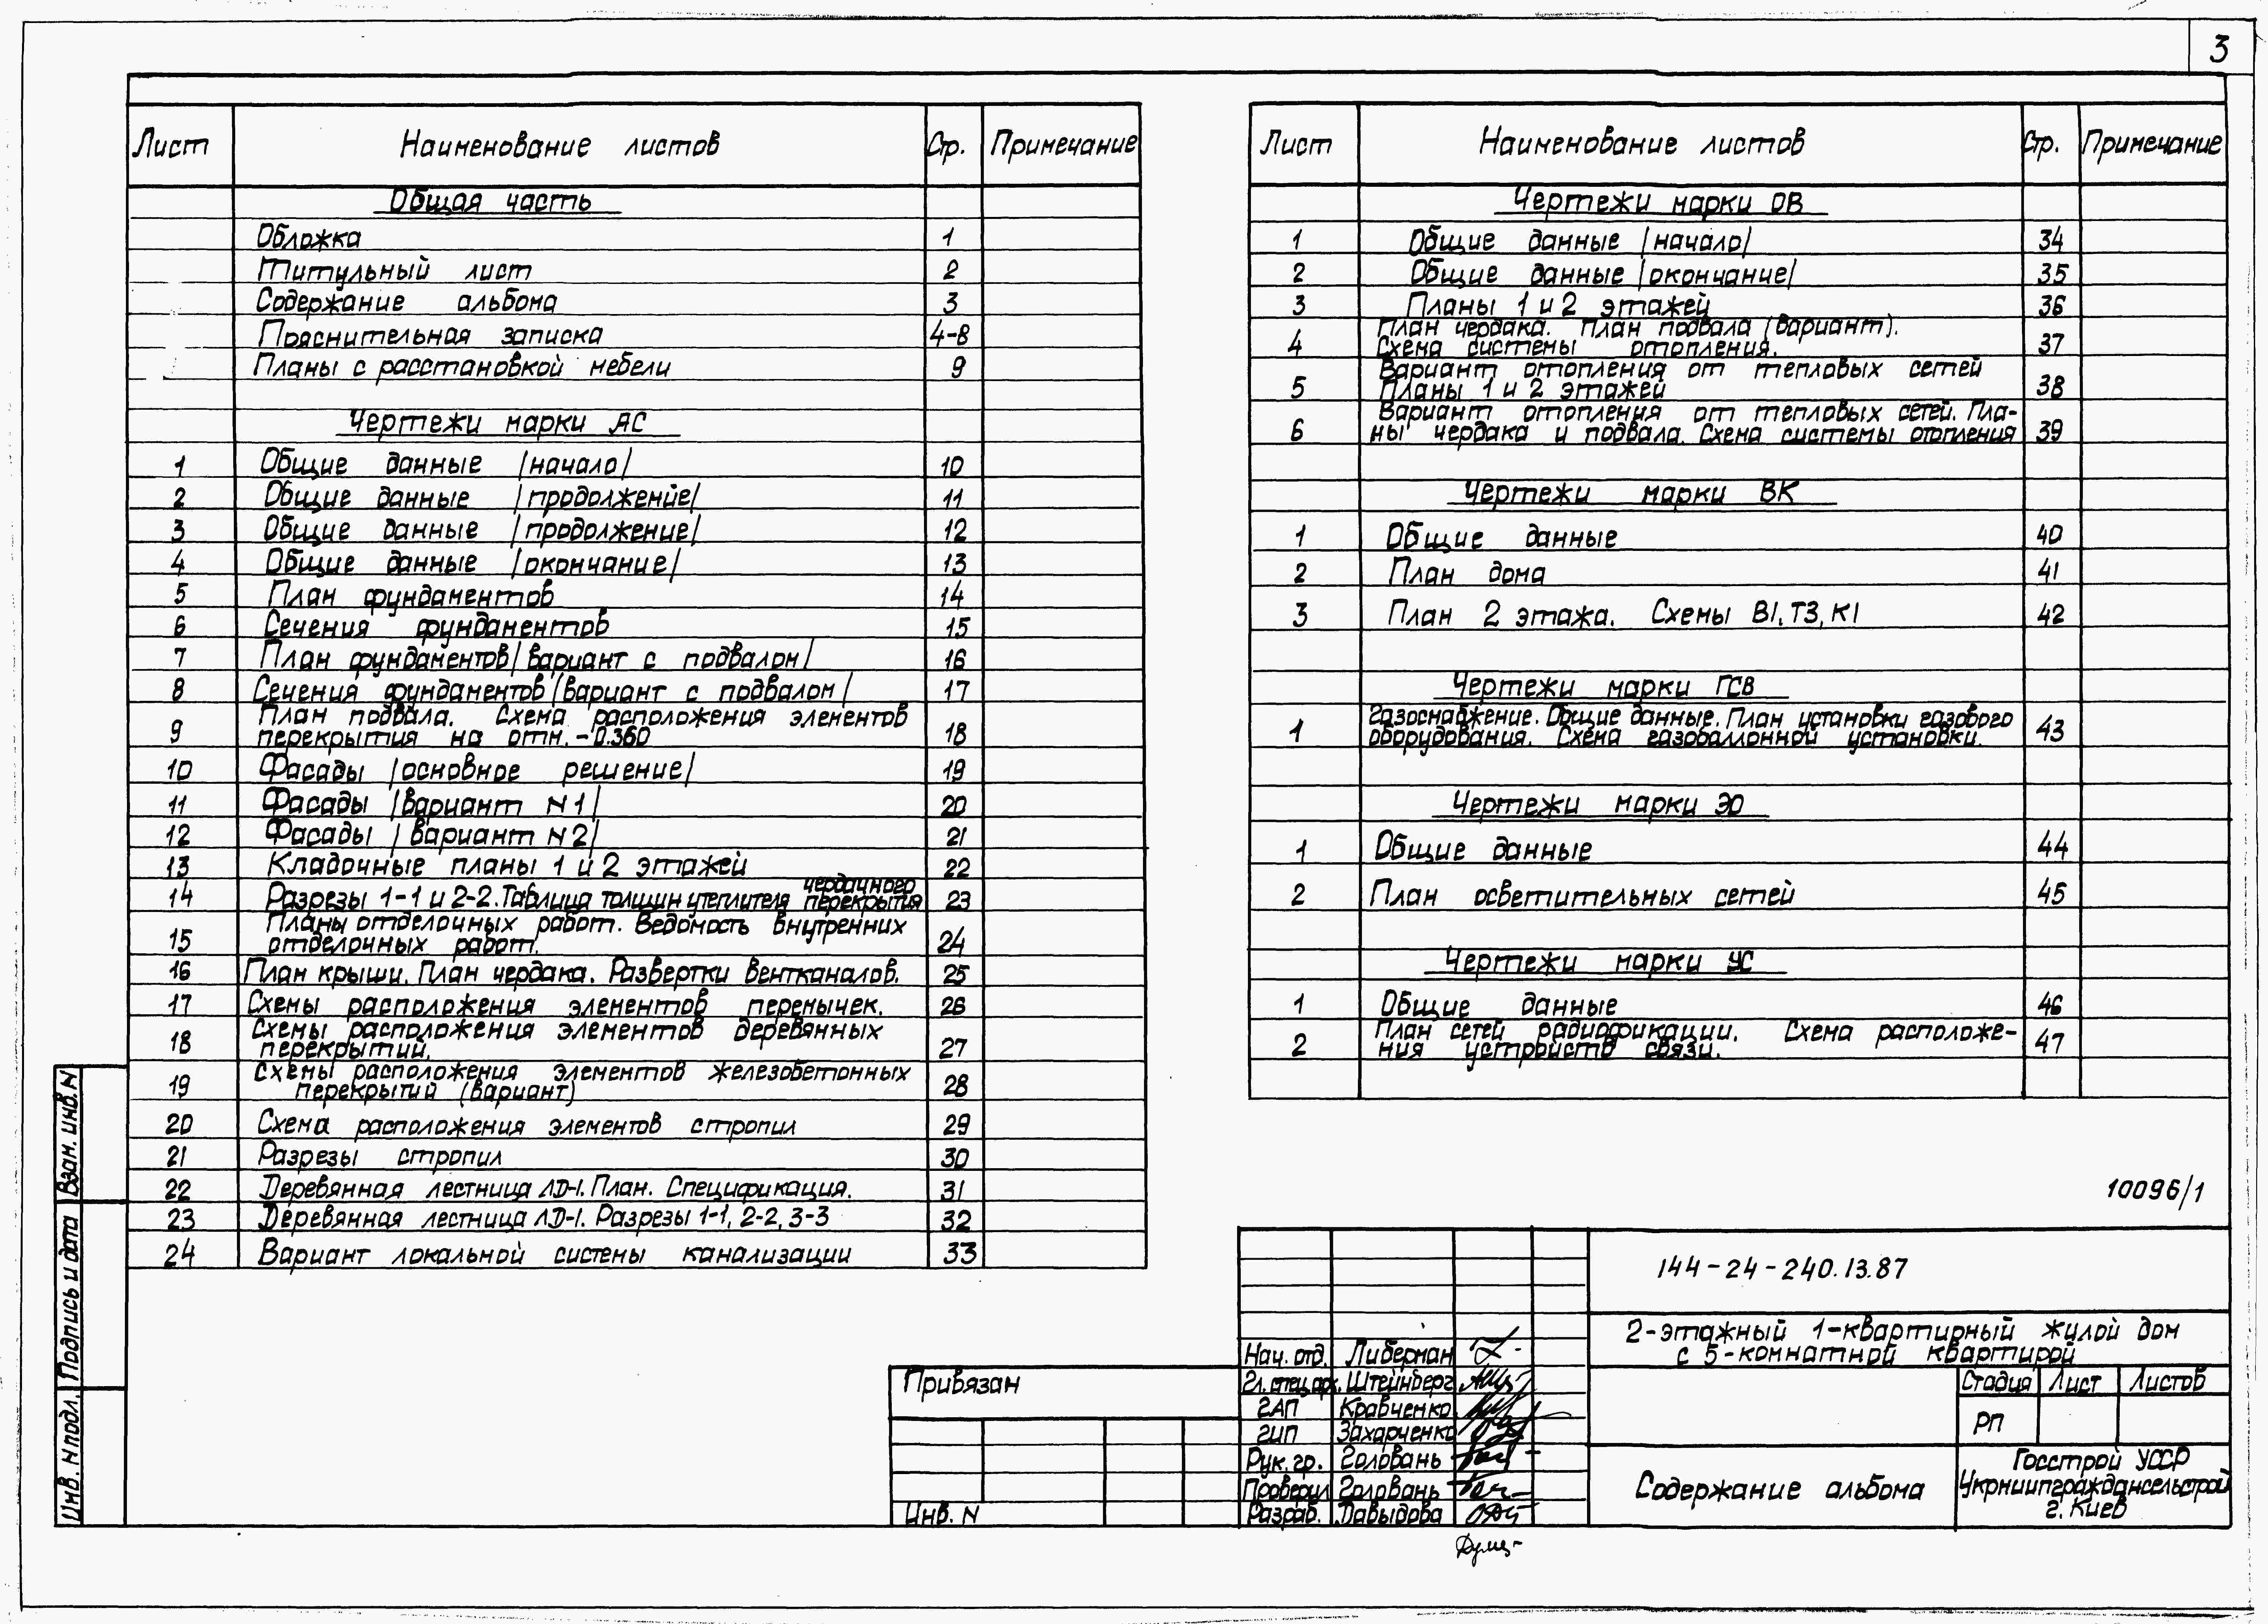 3
Лист Наименование листов Стр. Примечание
Общая часть
Обложка 1
Титульный лист 2
Содержание альбома 3
Пояснительная записка 4-8
Планы с расстановкой мебели 9
Чертежи марки АС
1 Общие данные /начало/ 10
2 Общие данные /продолжение/ 11
3 Общие данные /продолжение/ 12
4 Общие данные /окончание/ 13
5 План фундаментов 14
6 Сечения фундаментов 15
7 План фундаментов/вариант с подвалом/ 16
8 Сечения фундаментов/вариант с подвалом/ 17
План подвала. Схема расположения элементов
9 перекрытия на отм. -0.360 18
10 Фасады /основное решение/ 19
11 Фасады /вариант N1/ 20
12 Фасады /вариант N2/ 21
13 Кладочные планы 1 и 2 этажей 22
чердачного
14 Разрезы 1-1 и 2-2. Таблица толщин утеплителя перекрытия 23
Планы отделочных работ. Ведомость внутренних
15 отделочных работ. 24
16 План крыши. План чердака. Развертки вентканалов. 25
17 Схемы расположения элементов перемычек. 26
Схемы расположения элементов деревянных
18 перекрытий. 27
Схемы расположения элементов железобетонных
19 перекрытий (вариант) 28
20 Схема расположения элементов стропил 29
21 Разрезы стропил 30
22 Деревянная лестница ЛD-1. План. Спецификация. 31
23 Деревянная лестница ЛD-1. Разрезы 1-1, 2-2, 3-3 32
24 Вариант локальной системы канализации 33
Лист Наименование листов Стр. Примечание
Чертежи марки ОВ
1 Общие данные /начало/ 34
2 Общие данные /окончание/ 35
3 Планы 1 и 2 этажей 36
План чердака. План подвала (вариант).
4 Схема системы отопления. 37
Вариант отопления от тепловых сетей
5 Планы 1 и 2 этажей 38
Вариант отопления от тепловых сетей. Пла-
6 ны чердака и подвала. Схема системы отопления 39
Чертежи марки ВК
1 Общие данные 40
2 План дома 41
3 План 2 этажа. Схемы В1, Т3, К1 42
Чертежи марки ГСВ
Газоснабжение. Общие данные. План установки газового
1 оборудования. Схема газобаллонной установки. 43
Чертежи марки ЭО
1 Общие данные 44
2 План осветительных сетей 45
Чертежи марки УС
1 Общие данные 46
План сетей радиофикации. Схема расположе-
2 ния устройств связи. 47
10096/1
144-24-240.13.87
2-этажный 1-квартирный жилой дом
с 5-комнатной квартирой
Нач. отд. Либерман
Гл. спец. арх. Штейнберг
ГАП Кравченко
ГИП Захарченко
Рук. гр. Головань
Проверил Головань
Разраб. Давыдова
Стадия Лист Листов
РП
Содержание альбома
Госстрой УССР
Укрниипграждансельстрой
г. Киев
Привязан
Инв. N
Взам. инв. N
Подпись и дата
Инв. N подл.